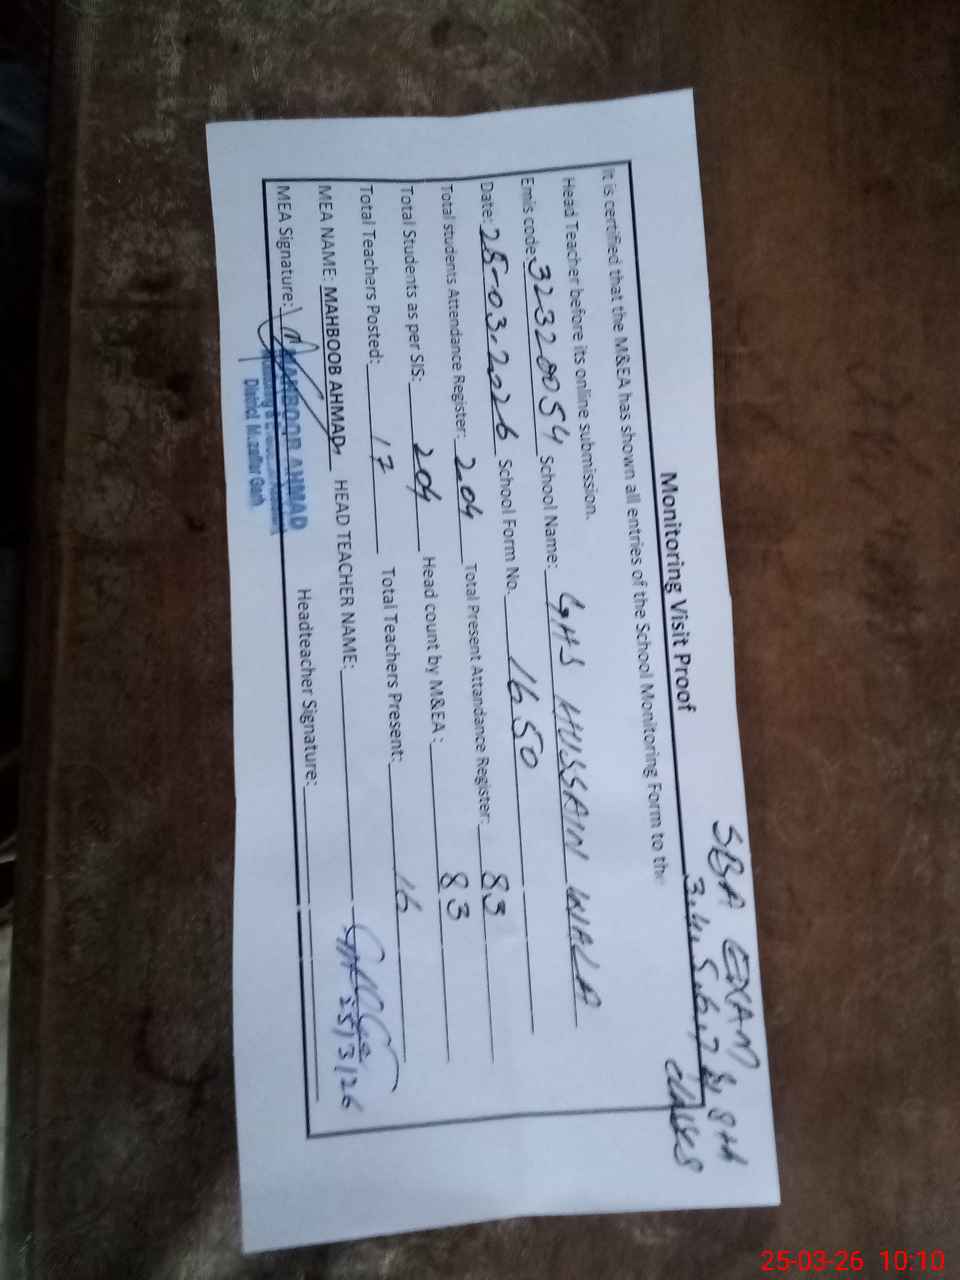 SBA EXAM
3.4.5.6.7 & 8th
classes
Monitoring Visit Proof
It is certified that the M&EA has shown all entries of the School Monitoring Form to the
Head Teacher before its online submission.
Emis code: 32320054 School Name: GHS HUSSAIN WALA
Date: 25-03.2226 School Form No. 1650
Total students Attendance Register: 204 Total Present Attandance Register: 83
Total Students as per SIS: 204 Head count by M&EA: 83
Total Teachers Posted: 17 Total Teachers Present: 16
MEA NAME: MAHBOOB AHMAD HEAD TEACHER NAME:
25/3/26
MEA Signature: Headteacher Signature:
MAHBOOB AHMAD
District Muzaffar Garh
25-03-26 10:10